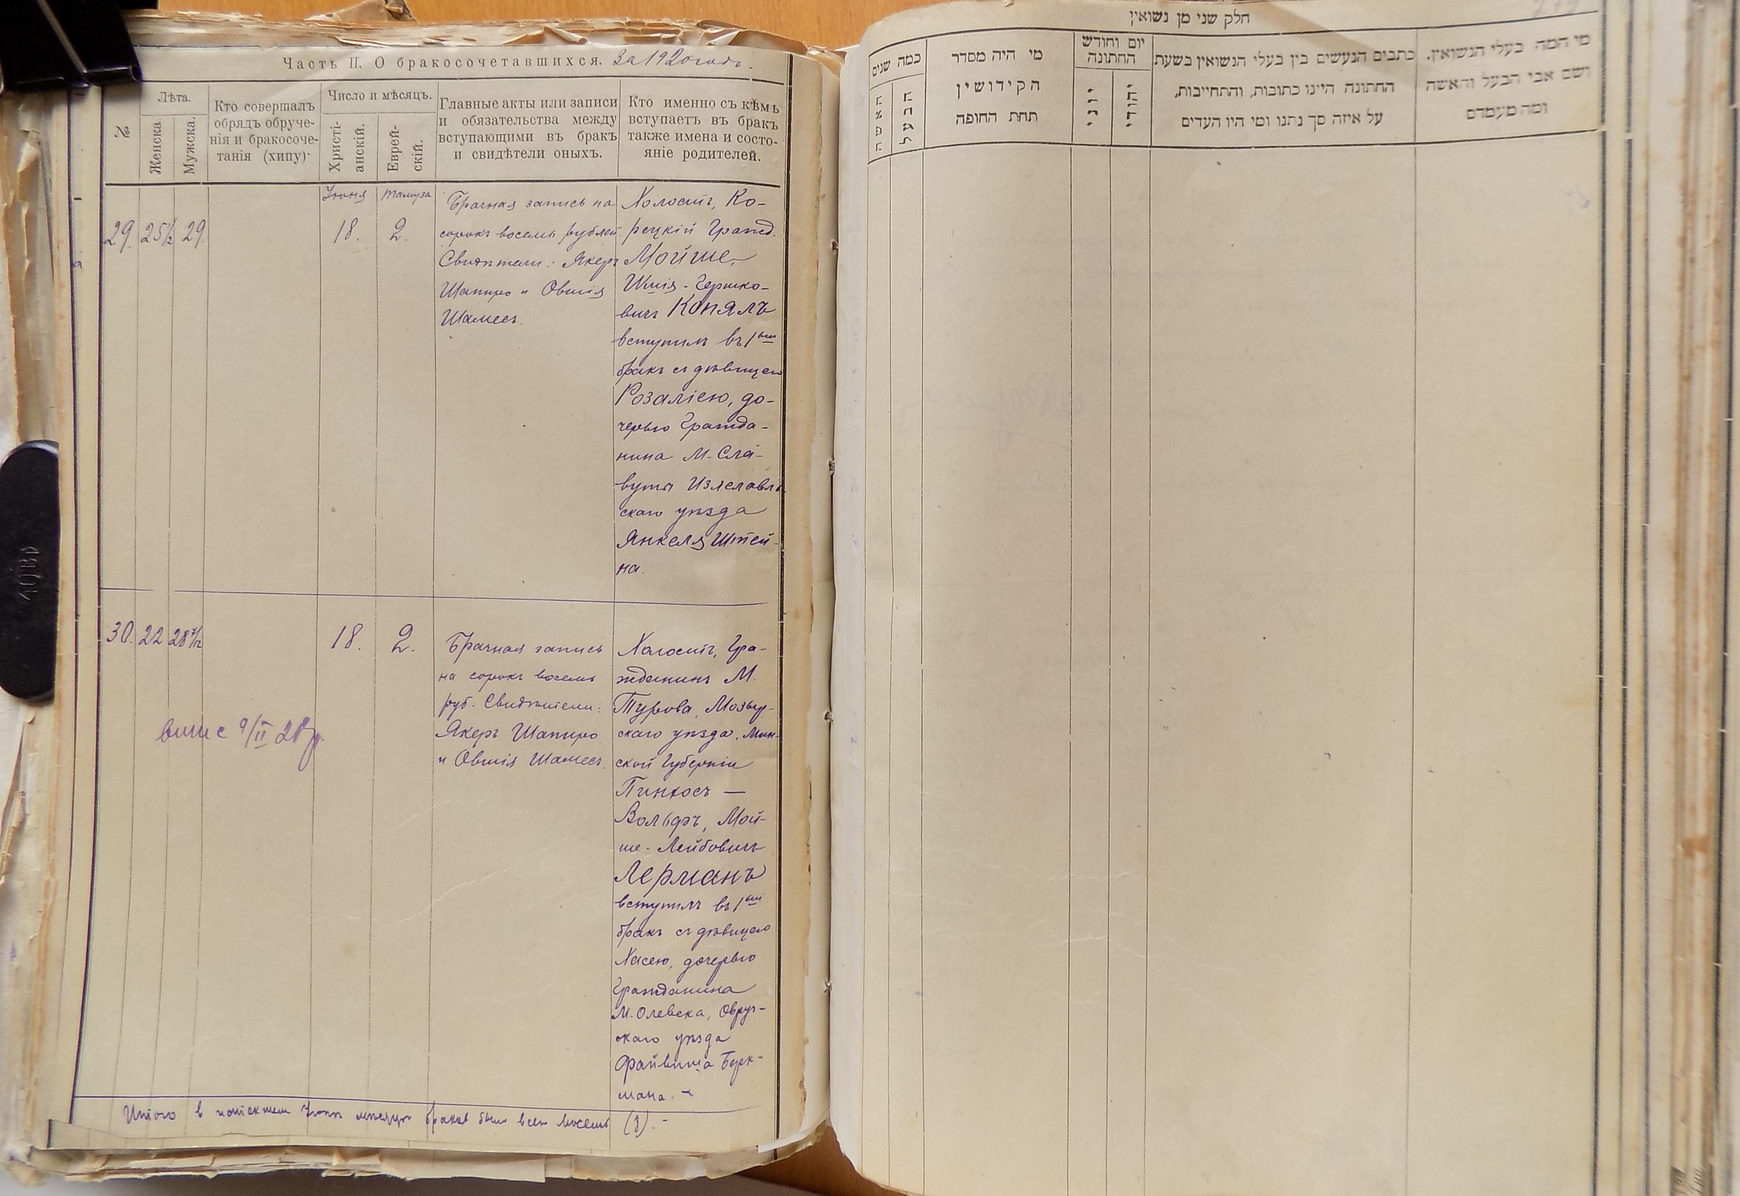 Часть II. О бракосочетавшихся. За 1920 годъ.
№
Лѣта.
Женска.
Мужска.
Кто совершалъ
обрядъ обруче-
нія и бракосоче-
танія (хипу):
Число и мѣсяцъ.
Христі-
анскій.
Еврей-
скій.
Главные акты или записи
и обязательства между
вступающими въ бракъ
и свидѣтели оныхъ.
Кто именно съ кѣмъ
вступаетъ въ бракъ
также имена и состо-
яніе родителей.
29. 25½ 29.
Іюня
18.
Тамуза
2.
Брачная запись на
сорокъ восемь рублей.
Свидѣтели: Якеръ
Шапиро и Овшія
Шамесъ.
Холостъ, Ко-
рецкій Гражд.
Мойше-
Шмія-Гершко-
вичъ Копялъ
вступилъ въ 1ый
бракъ съ дѣвицею
Розаліею, до-
черью Гражда-
нина М. Сла-
вуты Изяславль-
скаго уѣзда
Янкеля Штей-
на.
30. 22 28½
18.
2.
Брачная запись
на сорокъ восемь
руб. Свидѣтели:
Якеръ Шапиро
и Овшія Шамесъ.
Холостъ, Гра-
жданинъ М.
Турова, Мозыр-
скаго уѣзда, Мин-
ской Губерніи
Пинхосъ —
Вольфъ, Мой-
ше-Лейбовичъ
Лерманъ
вступилъ въ 1ый
бракъ съ дѣвицею
Хасею, дочерью
Гражданина
М. Олевска, Овруч-
скаго уѣзда
Файвиша Берк-
мана. —
9/II 28 р.
Итого в мѣсяцѣ браков было всего восемь (8). —
חלק שני מן נשואין
כמה שנים
האשה
הבעל
מי היה מסדר
הקידושין
תחת החופה
יום וחודש
החתונה
יוני
יהודי
כתבים הנעשים בין בעלי הנשואין בשעת
החתונה היינו כתובות, והתחייבות,
על איזה סך נתנו ומי היו העדים
מי המה בעלי הנשואין.
ושם אבי הבעל והאשה
ומה מעמדם